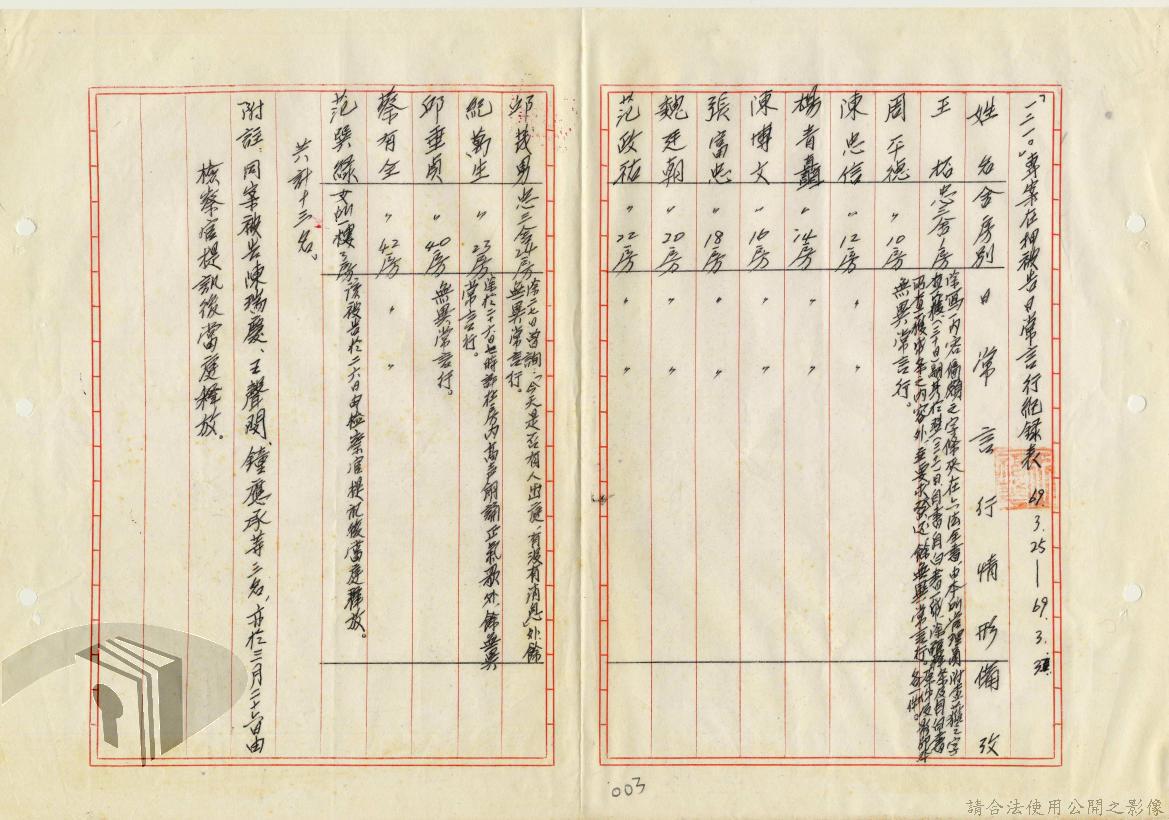 「一二一〇」專案在押被告日常言行紀錄表 69.3.25—69.3.31.
姓名 舍房別 日常言行情形 備攷
王拓 忠三舍 房
兩者 無異常言行。
周平德 〃 10房 無異常言行。
陳忠信 〃 12房 〃 〃
楊青矗 〃 14房 〃 〃
陳博文 〃 16房 〃 〃
張富忠 〃 18房 〃 〃
魏廷朝 〃 20房 〃 〃
范政祐 〃 22房 〃 〃
邱茂男 忠三舍24房 除二七日曾詢:「今天是否有人出庭,有沒有消息」外餘無異常言行。
紀萬生 〃 23房 除於二十六日七時許在房內高声朗誦正氣歌外餘無異常言行。
邱垂貞 〃 40房 無異常言行。
蔡有全 〃 42房 〃 〃
范巽綠 女所一樓3房 該被告於二六日由檢察官提訊後當庭釋放。
共計十三名。
附註:同案被告陳瑞慶、王聲閔、鐘應承等三名,亦於三月二十六日由
檢察官提訊後當庭釋放。
003
請合法使用公開之影像